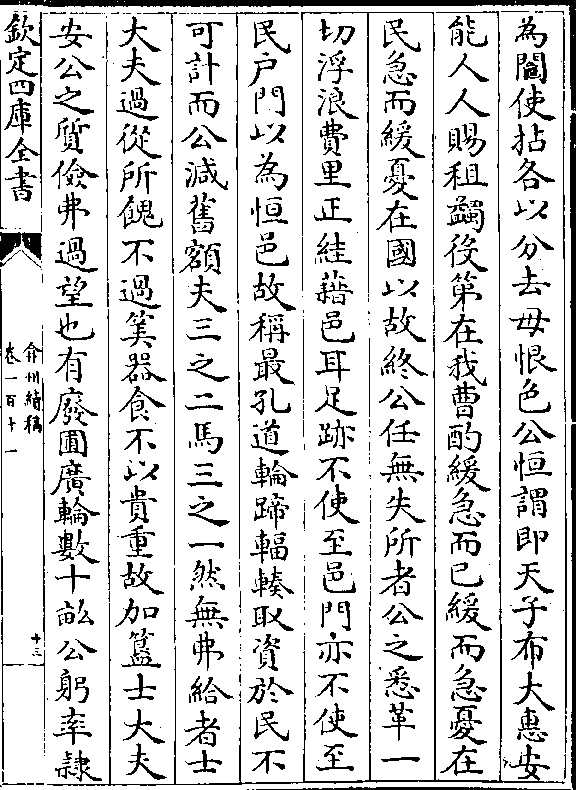 為鬮使拈各以分去毋恨色公恒謂即天子布大惠安
能人人賜租蠲役第在我曹酌緩急而已緩而急憂在
民急而緩憂在國以故終公任無失所者公之悉革一
切浮浪費里正絓藉邑耳足跡不使至邑門亦不使至
民户門以為恒邑故稱最孔道輪蹄輻輳取資於民不
可計而公減舊額夫三之二馬三之一然無弗給者士
大夫過從所餽不過箕器食不以貴重故加簋士大夫
安公之質儉弗過望也有廢圃廣輪數十畝公躬率隸
欽定四庫全書
弇州續稿
卷一百十一
十三